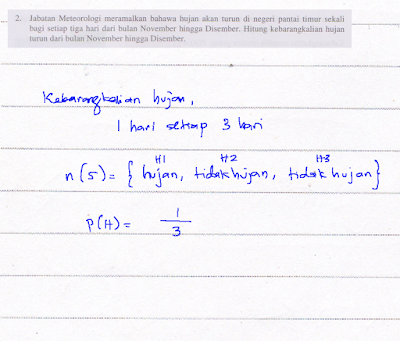 2. Jabatan Meteorologi meramalkan bahawa hujan akan turun di negeri pantai timur sekali
bagi setiap tiga hari dari bulan November hingga Disember. Hitung kebarangkalian hujan
turun dari bulan November hingga Disember.
Kebarangkalian hujan,
1 hari setiap 3 hari
H1 H2 H3
n(S) = { hujan, tidak hujan, tidak hujan}
P(H) = 1/3